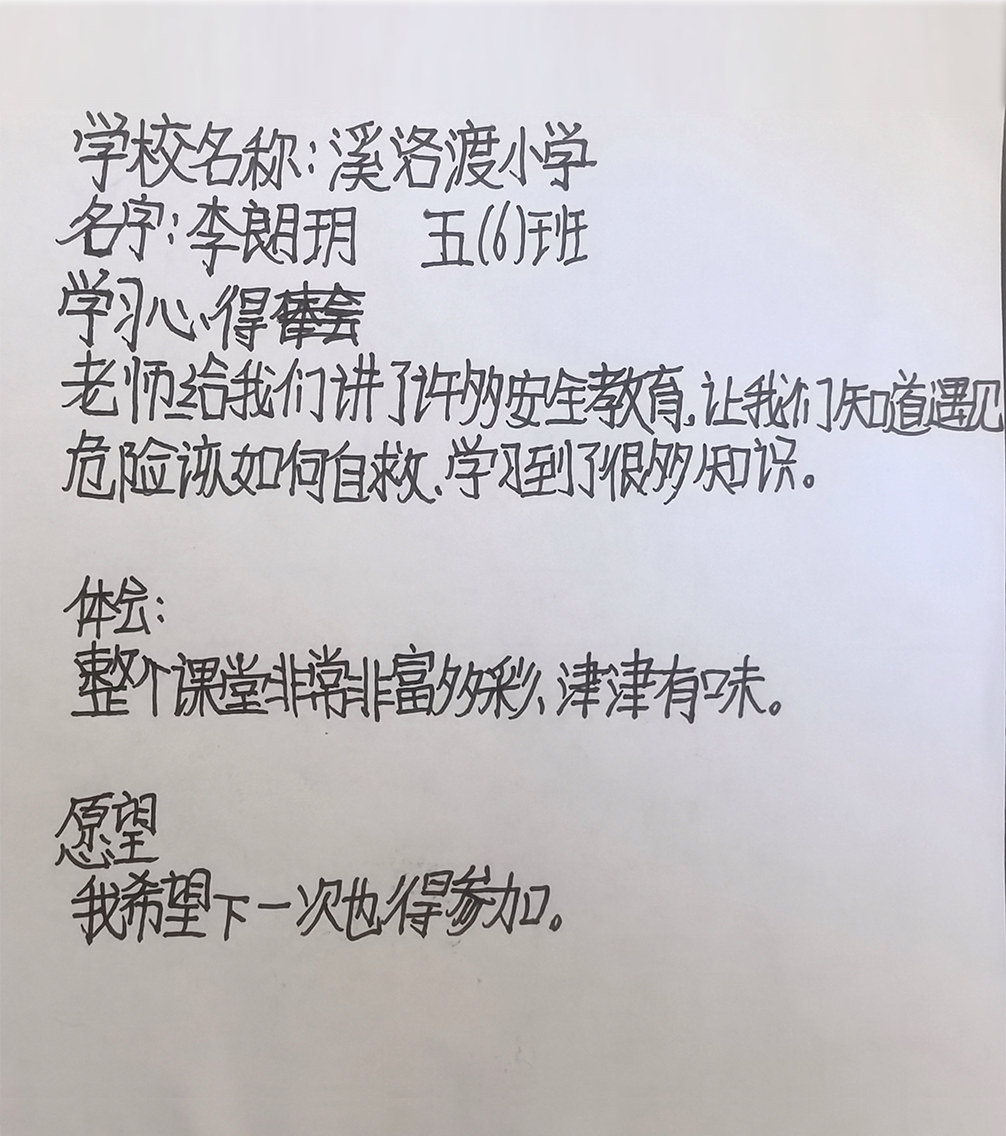 学校名称：溪洛渡小学
名字：李朗玥 五(6)班
学习心得
老师给我们讲了许多安全教育，让我们知道遇见
危险该如何自救、学习到了很多知识。
体会：
整个课堂非常非富多彩、津津有味。
愿望
我希望下一次也得参加。